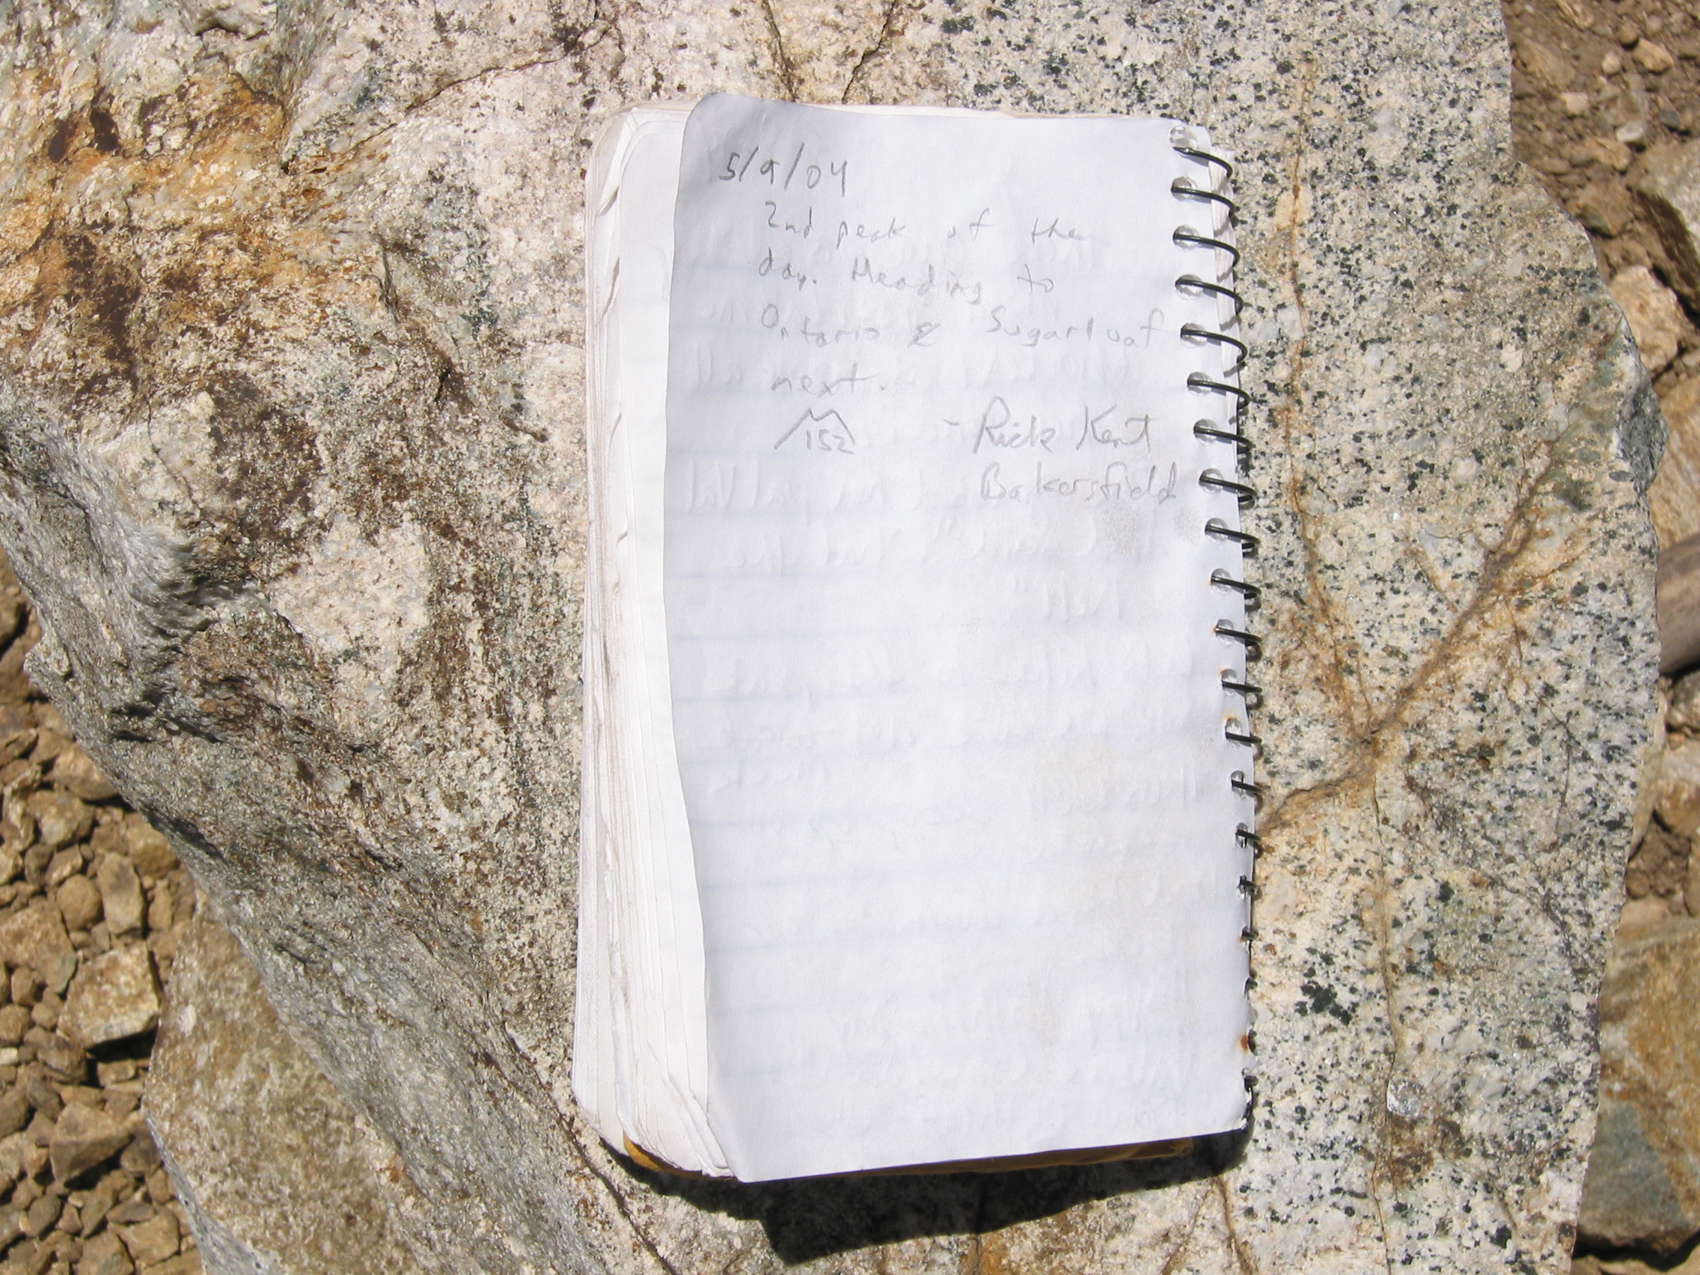 5/9/04
2nd peak of the
day. Heading to
Ontario & Sugarloaf
next.
152 - Rick Kent
Bakersfield